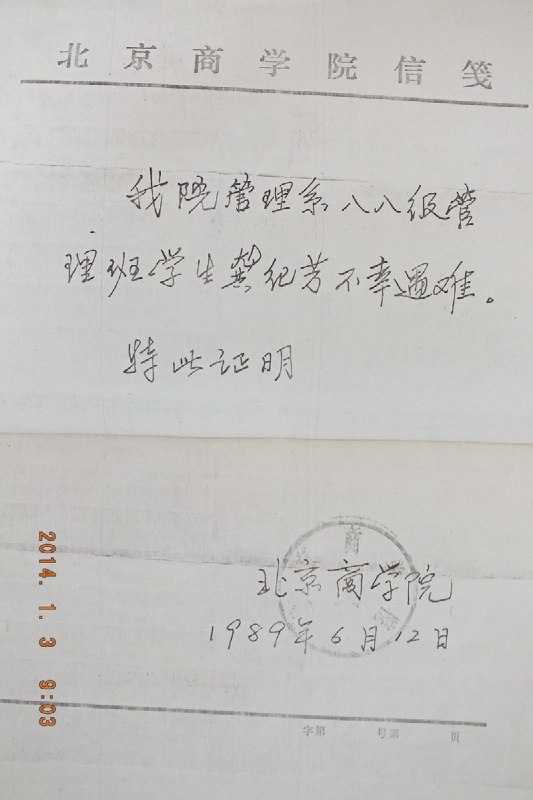 北京商学院信笺
我院管理系八八级管
理班学生龚纪芳不幸遇难。
特此证明
北京商学院
1989年6月12日
字第 号第 页
2014. 1. 3 9:03